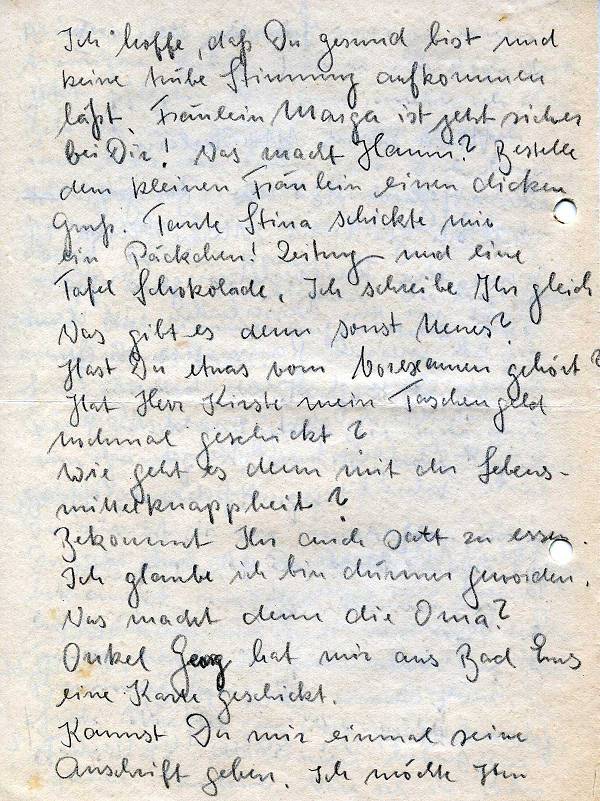 Ich hoffe, daß Du gesund bist und
keine trübe Stimmung aufkommen
läßt. Fräulein Marga ist jetzt sicher
bei Dir! Was macht Hanni? Bestelle
dem kleinen Fräulein einen dicken
Gruß. Tante Stina schickte mir
ein Päckchen! Zeitung und eine
Tafel Schokolade. Ich schreibe Ihr gleich
Was gibt es denn sonst Neues?
Hast Du etwas vom Vorexamen gehört?
Hat Herr Kirste mein Taschengeld
nochmal geschickt?
Wie geht es denn mit der Lebens-
mittelknappheit?
Bekommt Ihr auch satt zu essen.
Ich glaube ich bin dünner geworden.
Was macht denn die Oma?
Onkel Georg hat mir aus Bad Ems
eine Karte geschickt.
Kannst Du mir einmal seine
Anschrift geben. Ich möchte Ihm